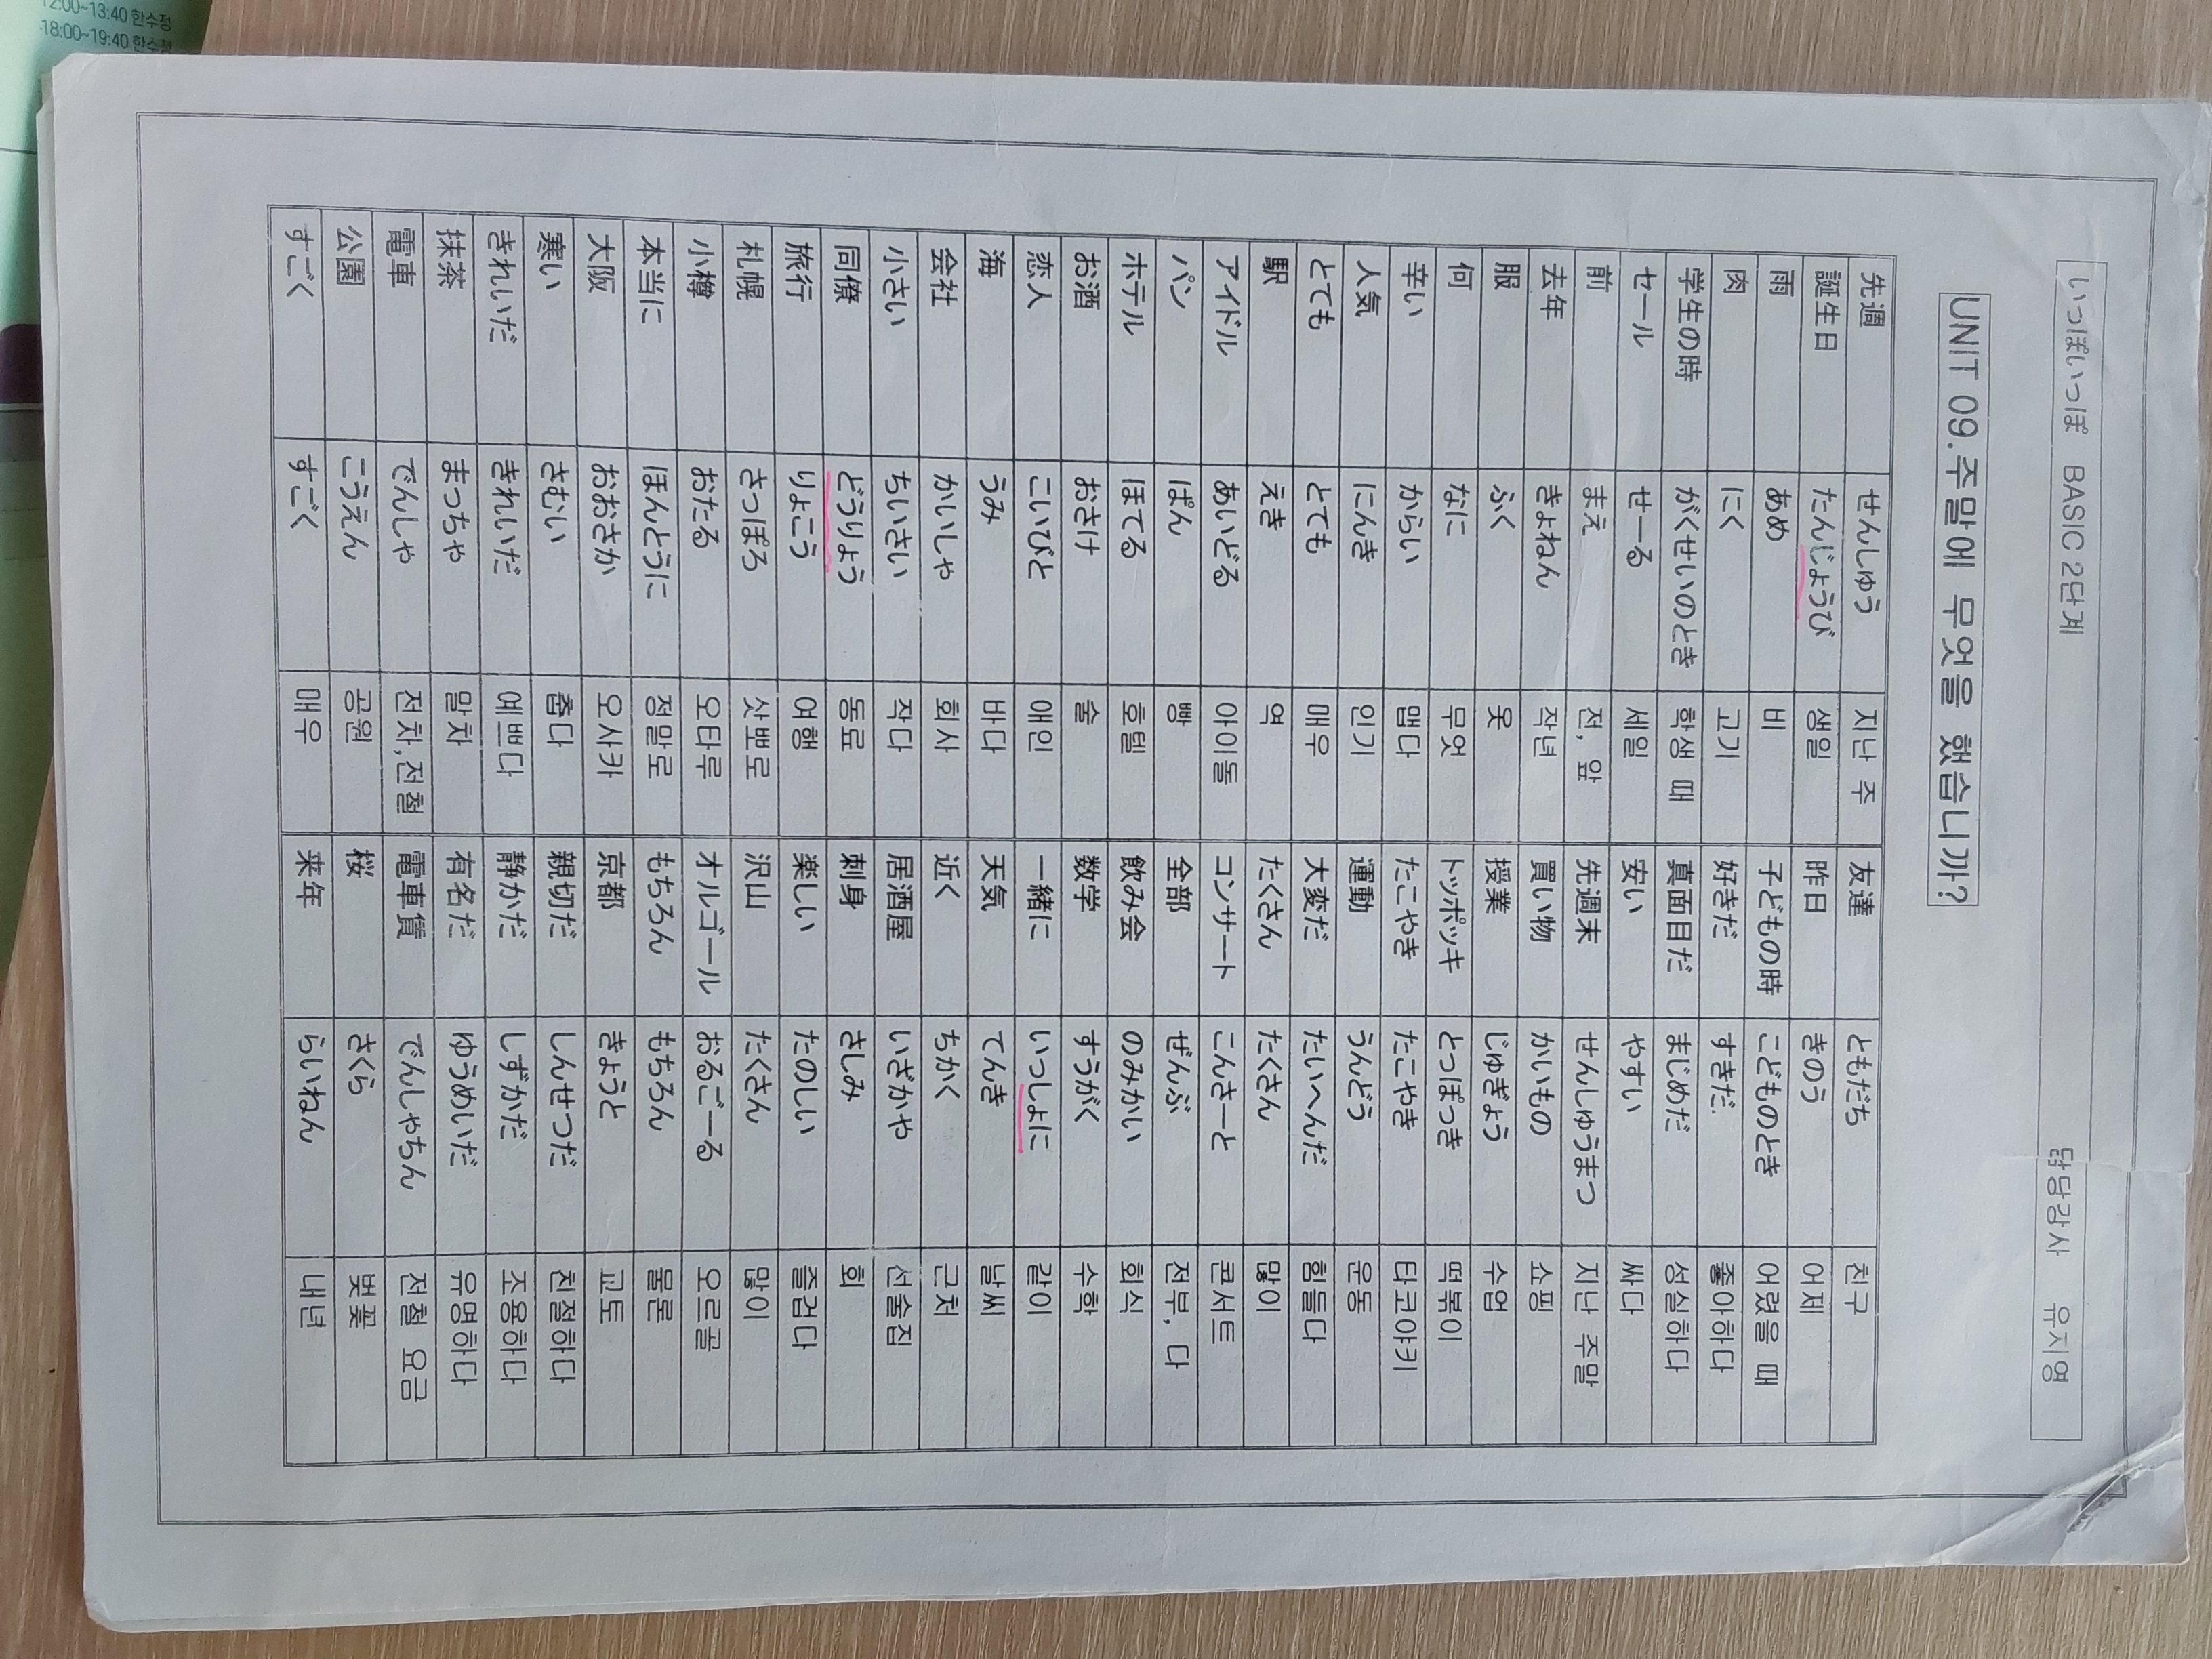 12:00~13:40 한수정
18:00~19:40 한수정
いっぽいっぽ BASIC 2단계 담당강사 유지영
UNIT 09.주말에 무엇을 했습니까?
先週 せんしゅう 지난 주 友達 ともだち 친구
誕生日 たんじょうび 생일 昨日 きのう 어제
雨 あめ 비 子どもの時 こどものとき 어렸을 때
肉 にく 고기 好きだ すきだ. 좋아하다
学生の時 がくせいのとき 학생 때 真面目だ まじめだ 성실하다
セール せーる 세일 安い やすい 싸다
前 まえ 전, 앞 先週末 せんしゅうまつ 지난 주말
去年 きょねん 작년 買い物 かいもの 쇼핑
服 ふく 옷 授業 じゅぎょう 수업
何 なに 무엇 トッポッキ とっぽっき 떡볶이
辛い からい 맵다 たこやき たこやき 타코야키
人気 にんき 인기 運動 うんどう 운동
とても とても 매우 大変だ たいへんだ 힘들다
駅 えき 역 たくさん たくさん 많이
アイドル あいどる 아이돌 コンサート こんさーと 콘서트
パン ぱん 빵 全部 ぜんぶ 전부, 다
ホテル ほてる 호텔 飲み会 のみかい 회식
お酒 おさけ 술 数学 すうがく 수학
恋人 こいびと 애인 一緒に いっしょに 같이
海 うみ 바다 天気 てんき 날씨
会社 かいしゃ 회사 近く ちかく 근처
小さい ちいさい 작다 居酒屋 いざかや 선술집
同僚 どうりょう 동료 刺身 さしみ 회
旅行 りょこう 여행 楽しい たのしい 즐겁다
札幌 さっぽろ 삿뽀로 沢山 たくさん 많이
小樽 おたる 오타루 オルゴール おるごーる 오르골
本当に ほんとうに 정말로 もちろん もちろん 물론
大阪 おおさか 오사카 京都 きょうと 교토
寒い さむい 춥다 親切だ しんせつだ 친절하다
きれいだ きれいだ 예쁘다 静かだ しずかだ 조용하다
抹茶 まっちゃ 말차 有名だ ゆうめいだ 유명하다
電車 でんしゃ 전차,전철 電車賃 でんしゃちん 전철 요금
公園 こうえん 공원 桜 さくら 벚꽃
すごく すごく 매우 来年 らいねん 내년